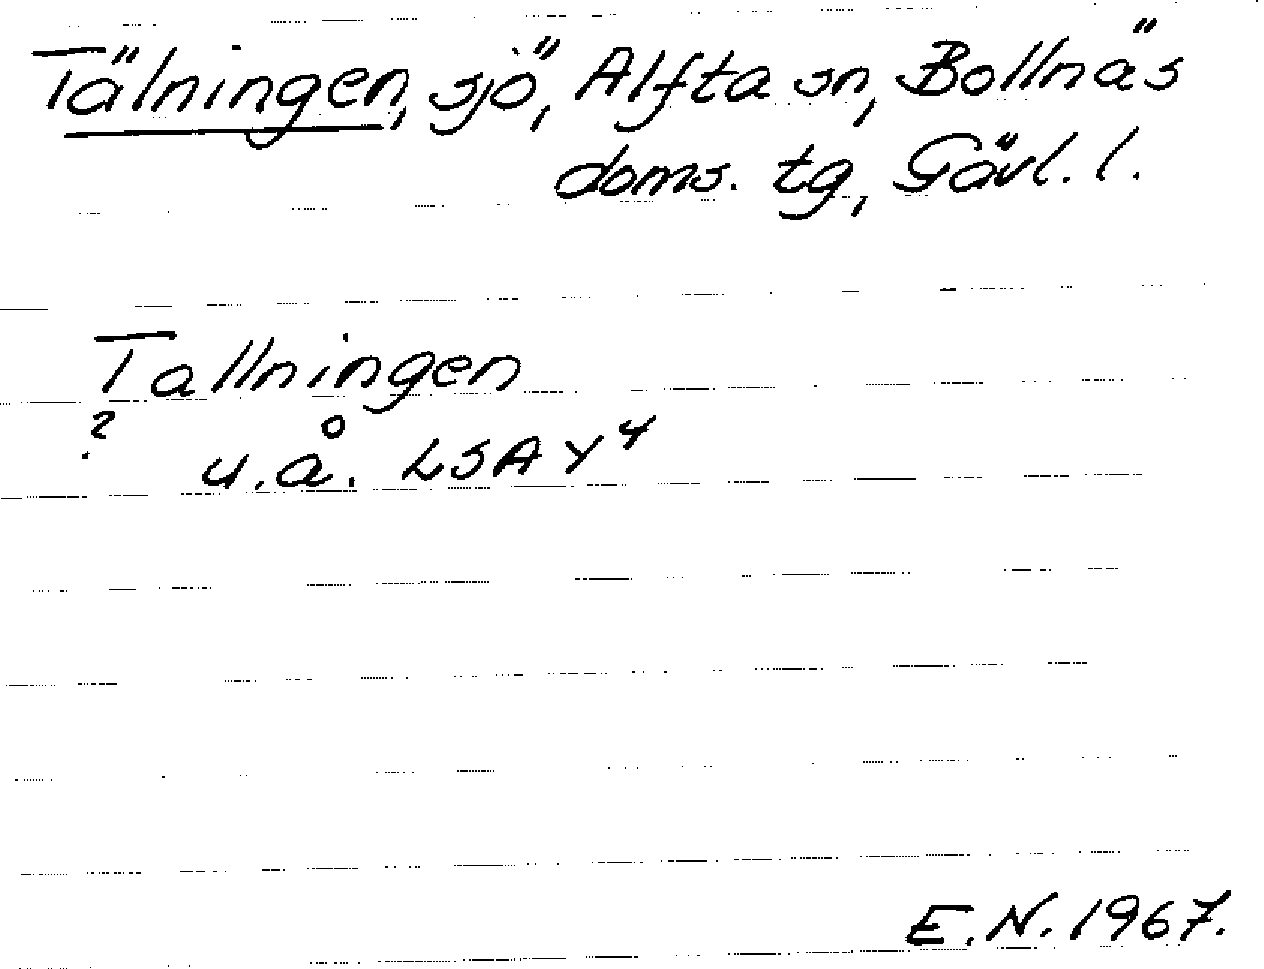 Tälningen, sjö, Alfta sn, Bollnäs
doms. tg, Gävl. l.
Tallningen
?
u.å. LSA Y4
E.N. 1967.